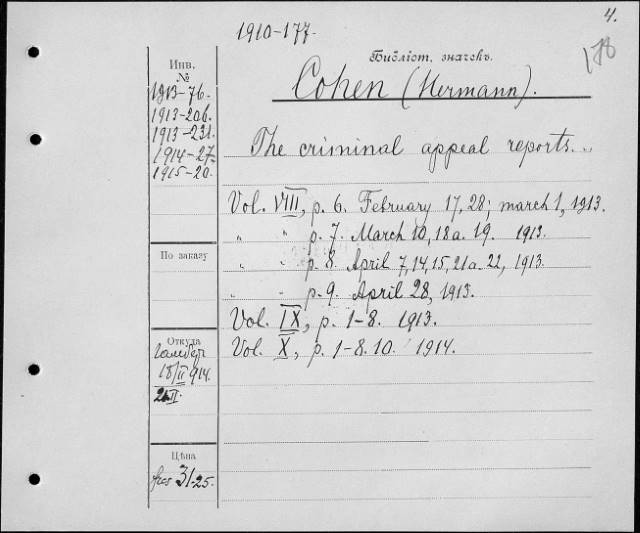 4.
1910-177.
178
Библіот. значекъ.
Cohen (Hermann).
Инв.
№
1913-76.
1913-206.
1913-231.
1914-27.
1915-20.
The criminal appeal reports...
Vol. VIII, p. 6. February 17, 28; march 1, 1913.
" " p. 7. March 10, 18 a. 19. 1913.
" " p. 8. April 7, 14, 15, 21 a. 22, 1913.
" " p. 9. April 28, 1913.
Vol. IX, p. 1-8. 1913.
Vol. X, p. 1-8. 10. 1914.
По заказу
Откуда
18/II 914.
Цѣна
31-25.